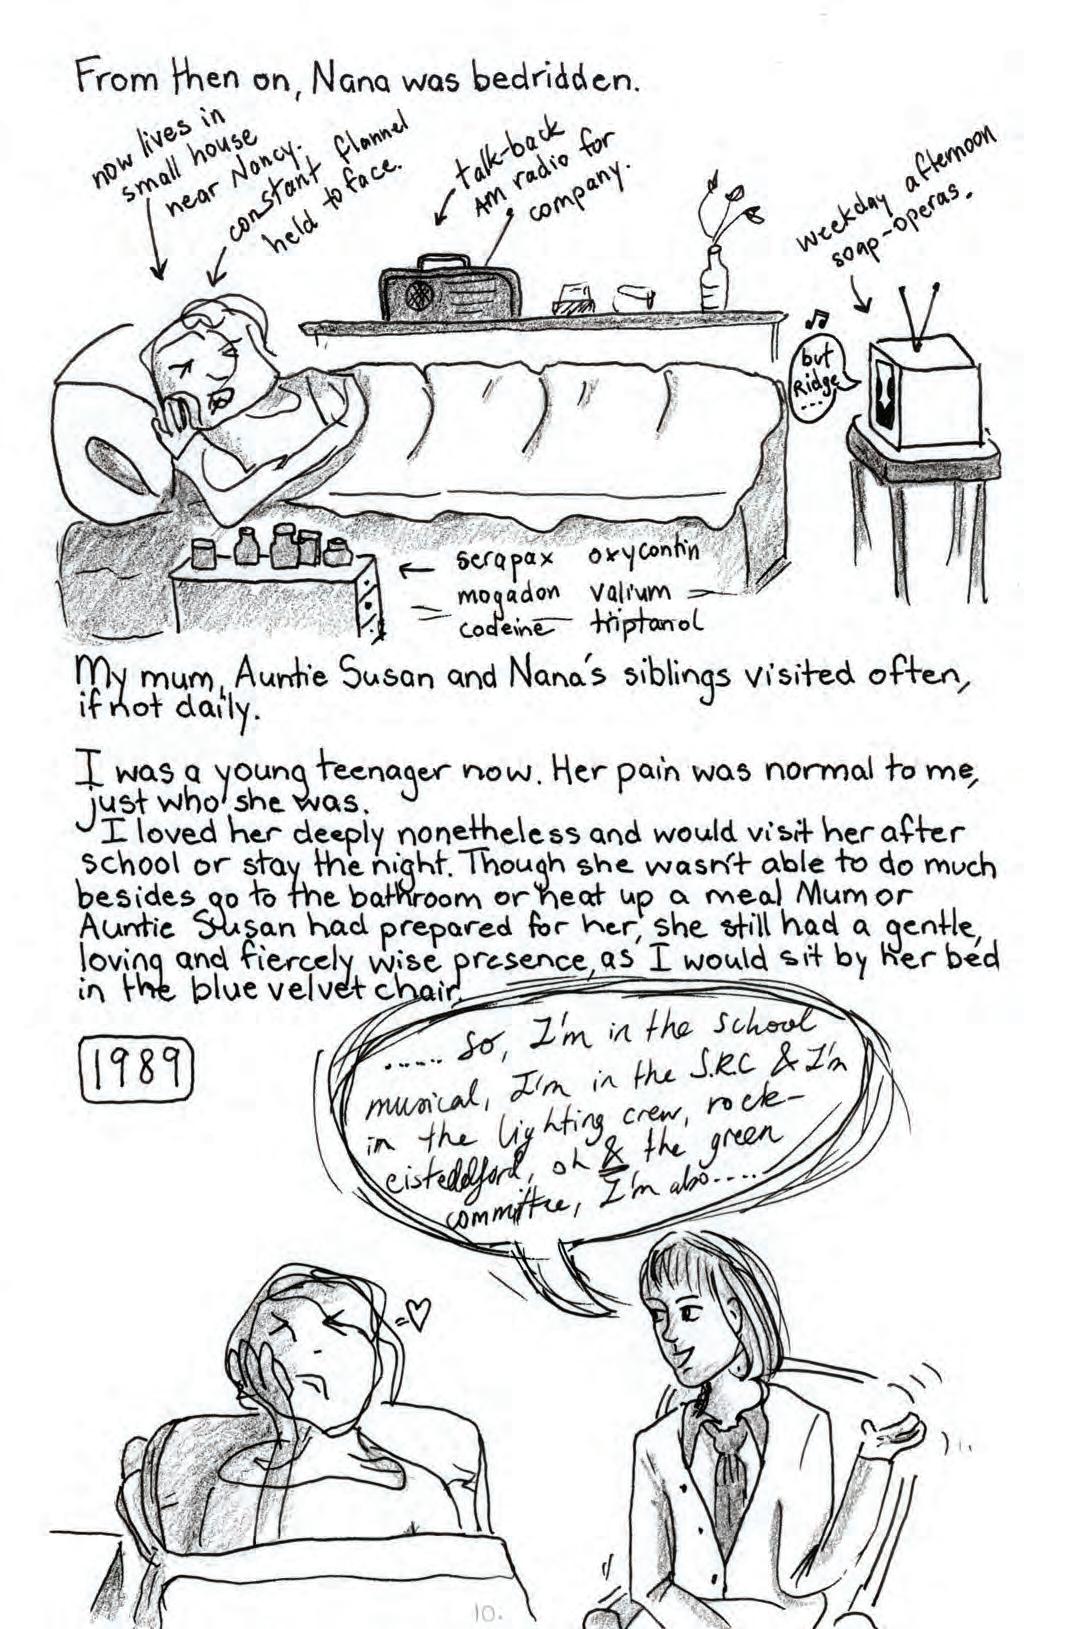 From then on, Nana was bedridden.
now lives in
small house
near Nancy.
constant flannel
held to face.
talk-back
AM radio for
company.
weekday afternoon
soap-operas.
but
Ridge
...
serapax oxycontin
mogadon valium
codeine triptanol
My mum, Auntie Susan and Nana's siblings visited often,
if not daily.
I was a young teenager now. Her pain was normal to me,
just who she was.
I loved her deeply nonetheless and would visit her after
school or stay the night. Though she wasn't able to do much
besides go to the bathroom or heat up a meal Mum or
Auntie Susan had prepared for her, she still had a gentle,
loving and fiercely wise presence, as I would sit by her bed
in the blue velvet chair.
1989
...... So, I'm in the school
musical, I'm in the S.R.C & I'm
in the lighting crew, rock-
eisteddford, oh & the green
committee, I'm also.....
10.